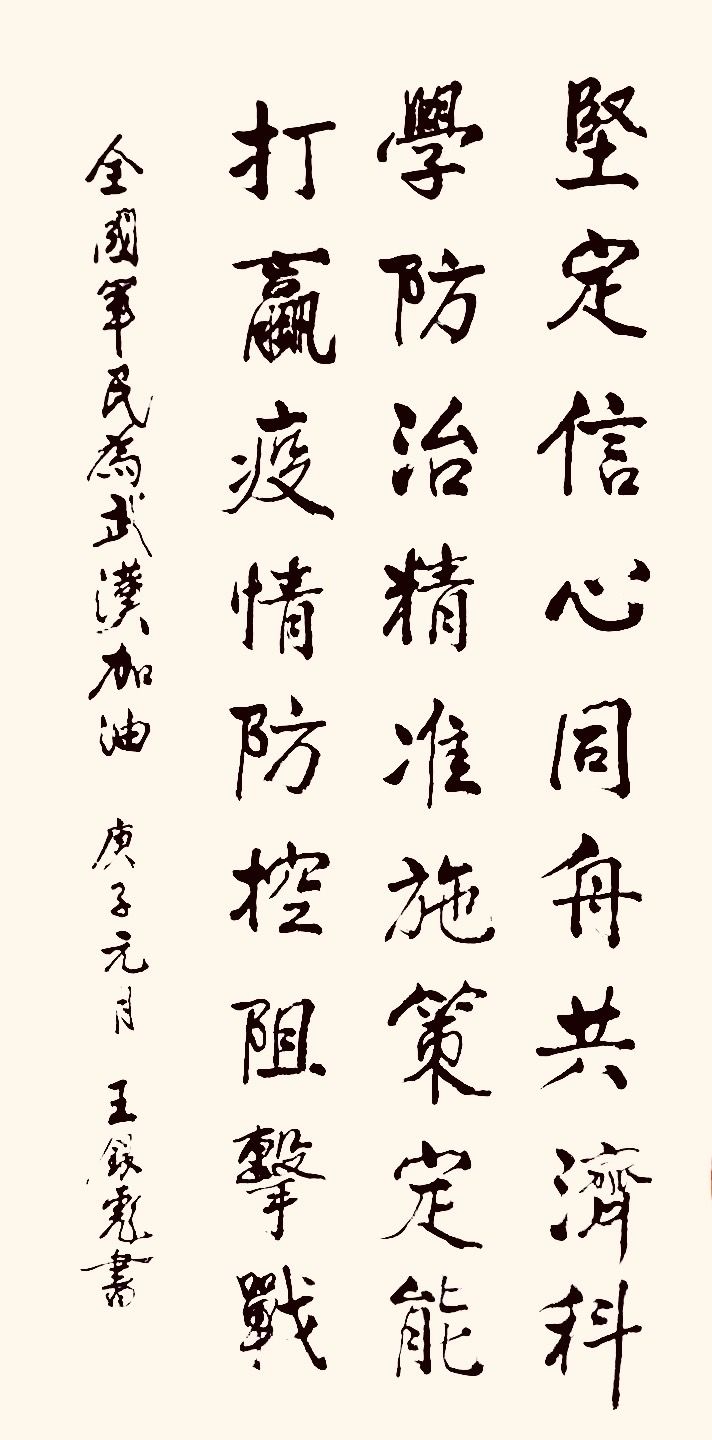 堅定信心同舟共濟科
學防治精准施策定能
打贏疫情防控阻擊戰
全國軍民為武漢加油 庚子元月 王銀彪書